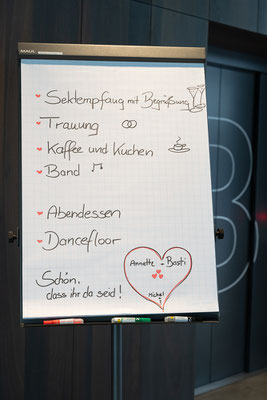 MAUL
Sektempfang mit Begrüßung
Trauung
Kaffee und Kuchen
Band
Abendessen
Dancefloor
Annette - Basti
Michel
Schön,
dass ihr da seid!
B